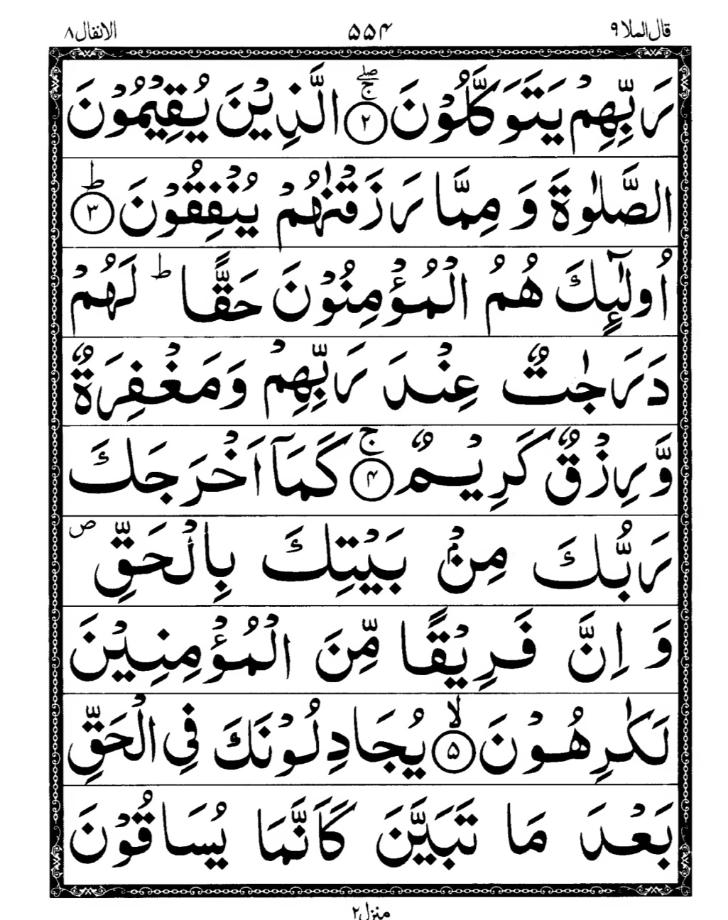 قال الملا ٩ ۵۵۴ الانفال ٨
رَبِّهِمْ يَتَوَكَّلُوْنَ ۚۖ ﴿۲﴾ الَّذِيْنَ يُقِيْمُوْنَ
الصَّلٰوةَ وَ مِمَّا رَزَقْنٰهُمْ يُنْفِقُوْنَ ؕ ﴿۳﴾
اُولٰٓئِكَ هُمُ الْمُؤْمِنُوْنَ حَقًّا ؕ لَهُمْ
دَرَجٰتٌ عِنْدَ رَبِّهِمْ وَمَغْفِرَةٌ
وَّرِزْقٌ كَرِيْمٌ ۚ ﴿۴﴾ كَمَاۤ اَخْرَجَكَ
رَبُّكَ مِنْۢ بَيْتِكَ بِالْحَقِّ ۪
وَ اِنَّ فَرِيْقًا مِّنَ الْمُؤْمِنِيْنَ
لَكٰرِهُوْنَ ۙ ﴿۵﴾ يُجَادِلُوْنَكَ فِي الْحَقِّ
بَعْدَ مَا تَبَيَّنَ كَاَنَّمَا يُسَاقُوْنَ
منزل ۲